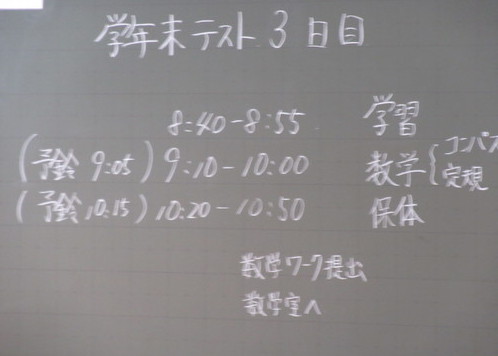 学年末テスト 3日目
8:40-8:55 学習
(予鈴 9:05) 9:10-10:00 数学{コンパス
定規
(予鈴 10:15) 10:20-10:50 保体
数学ワーク提出
数学室へ